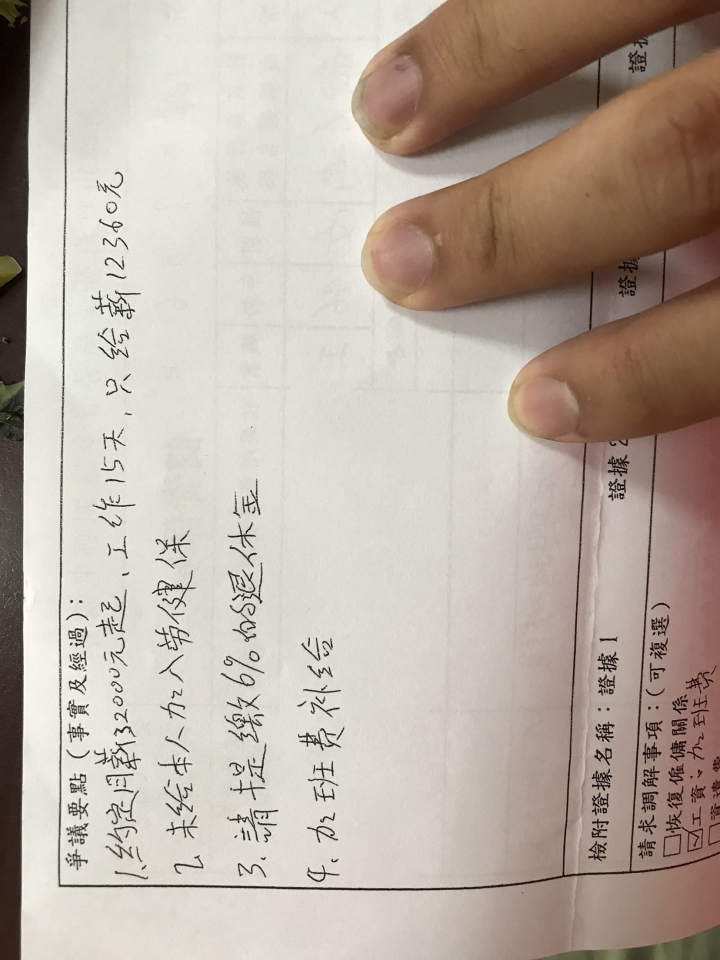 爭議要點(事實及經過):
1.約定月薪32000元起、工作15天,只给薪12360元
2.未给本人加入劳健保
3.請提繳6%的退休金
4.加班费补给
檢附證據名稱:證據1
證據2
證據
證據
請求調解事項:(可複選)
□恢復僱傭關係
☑工資:加班费